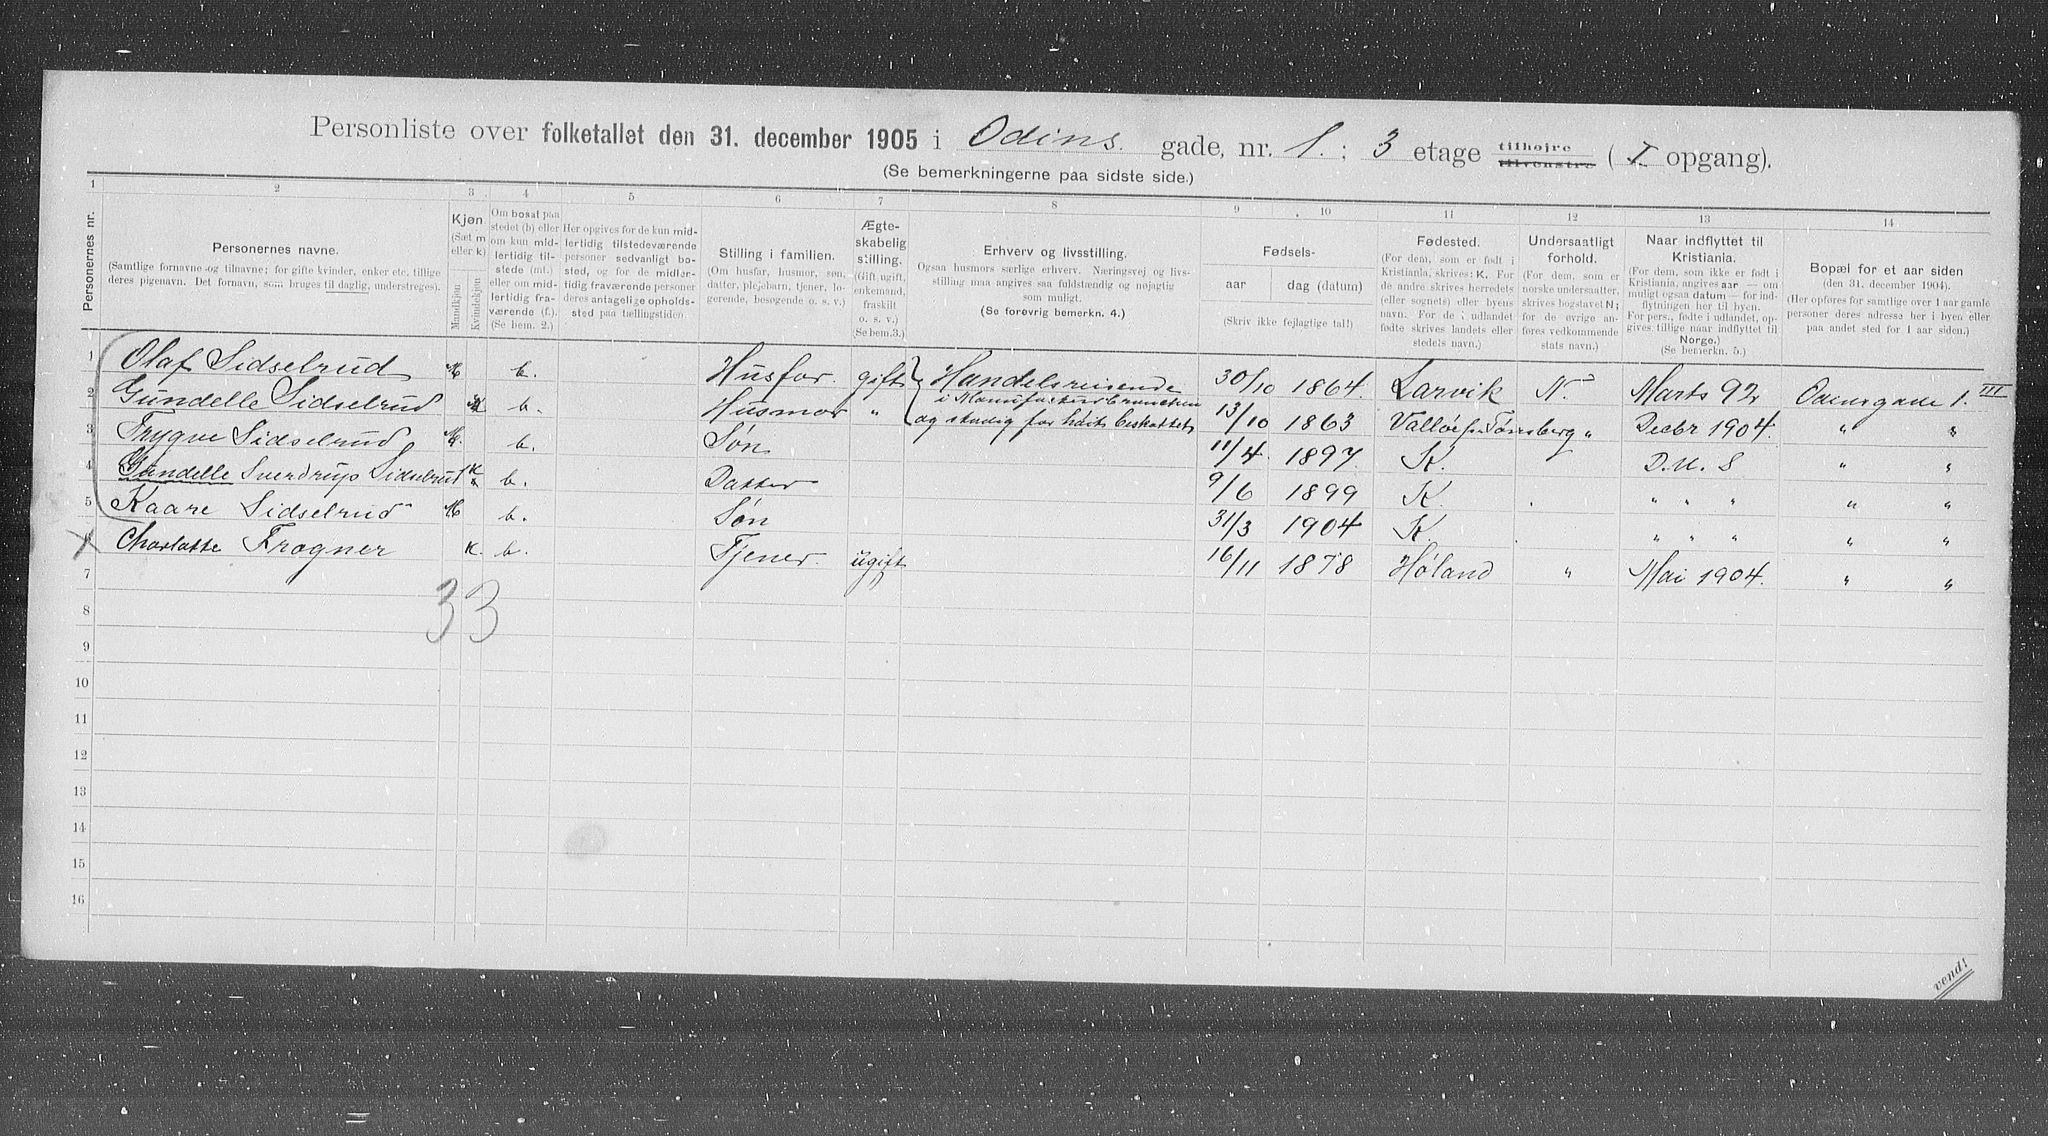 Personliste over folketallet den 31. december 1905 i Odins. gade, nr. 1.; 3 etage tilhøjre tilvenstre ( I opgang).
(Se bemerkningerne paa sidste side.)
1 2 3 4 5 6 7 8 9 10 11 12 13 14
Personernes nr.
Personernes navne.
(Samtlige fornavne og tilnavne; for gifte kvinder, enker etc. tillige
deres pigenavn. Det fornavn, som bruges til daglig, understreges).
Kjøn.
(Sæt m
eller k)
Mandkjøn
Kvindekjøn
Om bosat paa
stedet (b) eller
om kun mid-
lertidig til-
stede (mt.)
eller om mid-
lertidig fra-
værende (f.).
(Se bem. 2.)
Her opgives for de kun mid-
lertidig tilstedeværende
personer sedvanligt bo-
sted, og for de midler-
tidig fraværende personer
deres antagelige opholds-
sted paa tællingstiden.
Stilling i familien.
(Om husfar, husmor, søn,
datter, plejebarn, tjener, lo-
gerende, besøgende o. s. v.)
Ægte-
skabelig
stilling.
(Gift, ugift,
enkemand,
fraskilt
o. s. v.)
(Se bem.3.)
Erhverv og livsstilling.
Ogsaa husmors særlige erhverv. Næringsvej og livs-
stilling maa angives saa fuldstændig og nøjagtig
som muligt.
(Se forøvrig bemerkn. 4.)
Fødsels-
aar dag (datum)
(Skriv ikke fejlagtige tal!)
Fødested.
(For dem, som er født i
Kristiania, skrives: K. For
de andre skrives herredets
(eller sognets) eller byens
navn. For de i udlandet
fødte skrives landets eller
stedets navn.)
Undersaatligt
forhold.
(For dem, som er
norske undersaatter,
skrives bogstavet N;
for de øvrige an-
føres vedkommende
stats navn.)
Naar indflyttet til
Kristiania.
(For dem, som ikke er født i
Kristiania, angives aar — om
muligt ogsaa datum — for ind-
flytningen her til byen.
For pers., fødte i udlandet, op-
gives tillige naar indflyttet til
Norge.)
(Se bemerkn. 5.)
Bopæl for et aar siden
(den 31. december 1904).
(Her opføres for samtlige over 1 aar gamle
personer deres adresse her i byen eller
paa andet sted for 1 aar siden.)
1 Olaf Sidselrud M b. Husfar. gift Handelsreisende 30/10 1864. Larvik N. Marts 92 Odinsgade 1. III
i Manufakturbranchen
2 Gundelle Sidselrud K b. Husmor " og stadig for hait beskattet 13/10 1863 Valløe pr Tønsberg " Decbr 1904. " "
3 Trygve Sidselrud M. b. Søn 11/4. 1897. K. D. U. S " "
4 Gundelle Sverdrup Sidselrud K b. Datter 9/6 1899 K " " " " "
5 Kaare Sidselrud M b. Søn 31/3 1904 K. " " " " "
6 Charlotte Frogner K. b. Tjener. ugift 16/11 1878 Høland " Mai 1904. " "
7
33
8
9
10
11
12
13
14
15
16
vend!